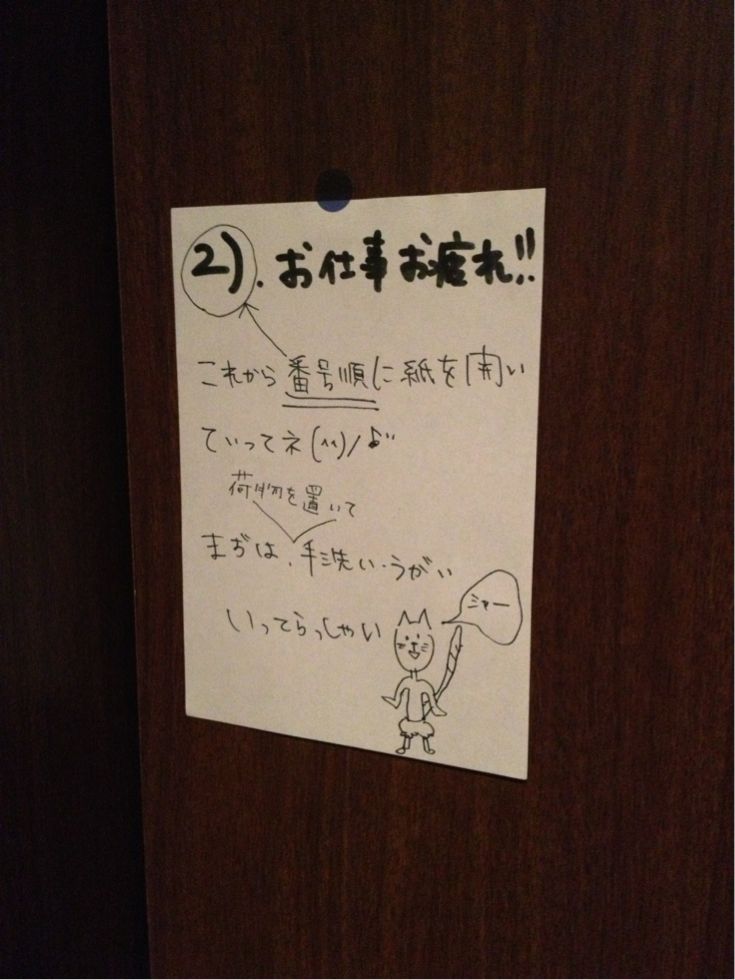 2). お仕事お疲れ!!
これから番号順に紙を開い
ていってネ(^^)/♪
荷物を置いて
まずは、手洗い・うがい
いってらっしゃい
シャー